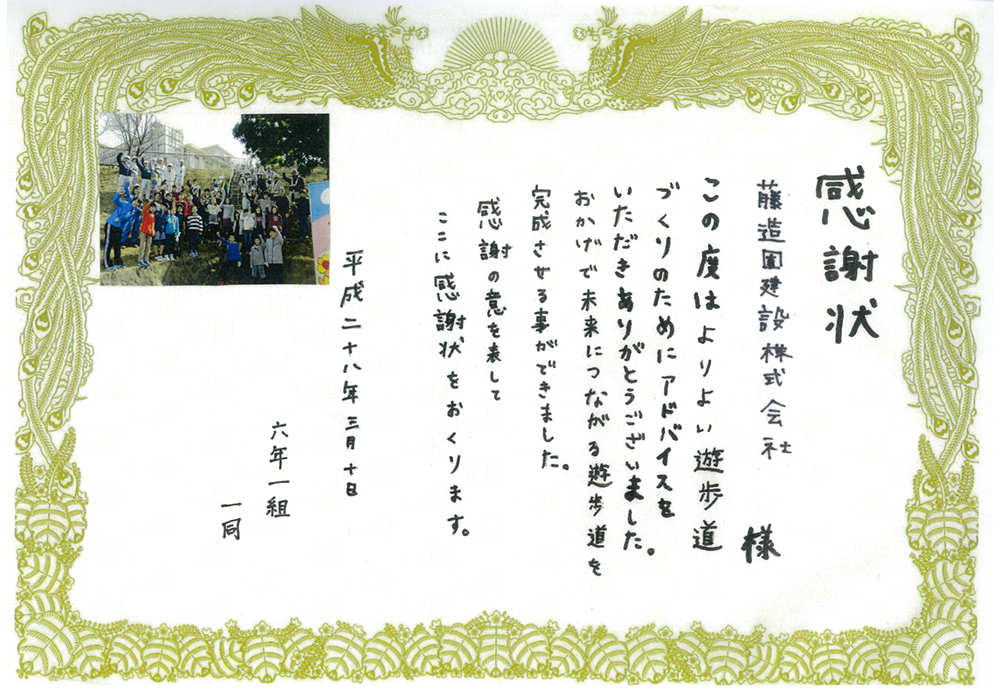 感謝状
藤造園建設株式会社 様
この度はよりよい遊歩道
づくりのためにアドバイスを
いただきありがとうございました。
おかげで未来につながる遊歩道を
完成させる事ができました。
感謝の意を表して
ここに感謝状をおくります。
平成二十八年三月十日
六年一組
一同